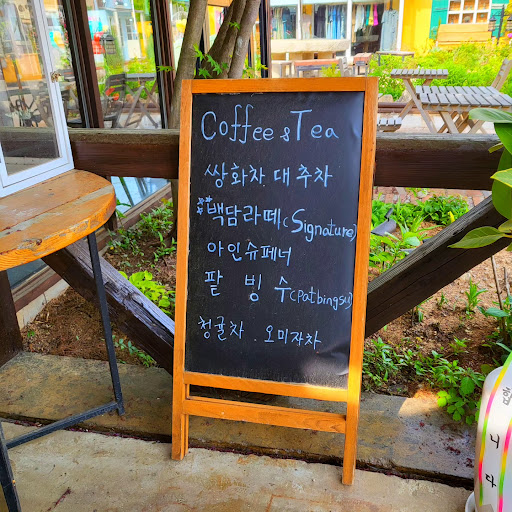 Coffee & Tea
쌍화차. 대추차
백담라떼(Signature)
아인슈페너
팥 빙 수(patbingsu)
청귤차. 오미자차